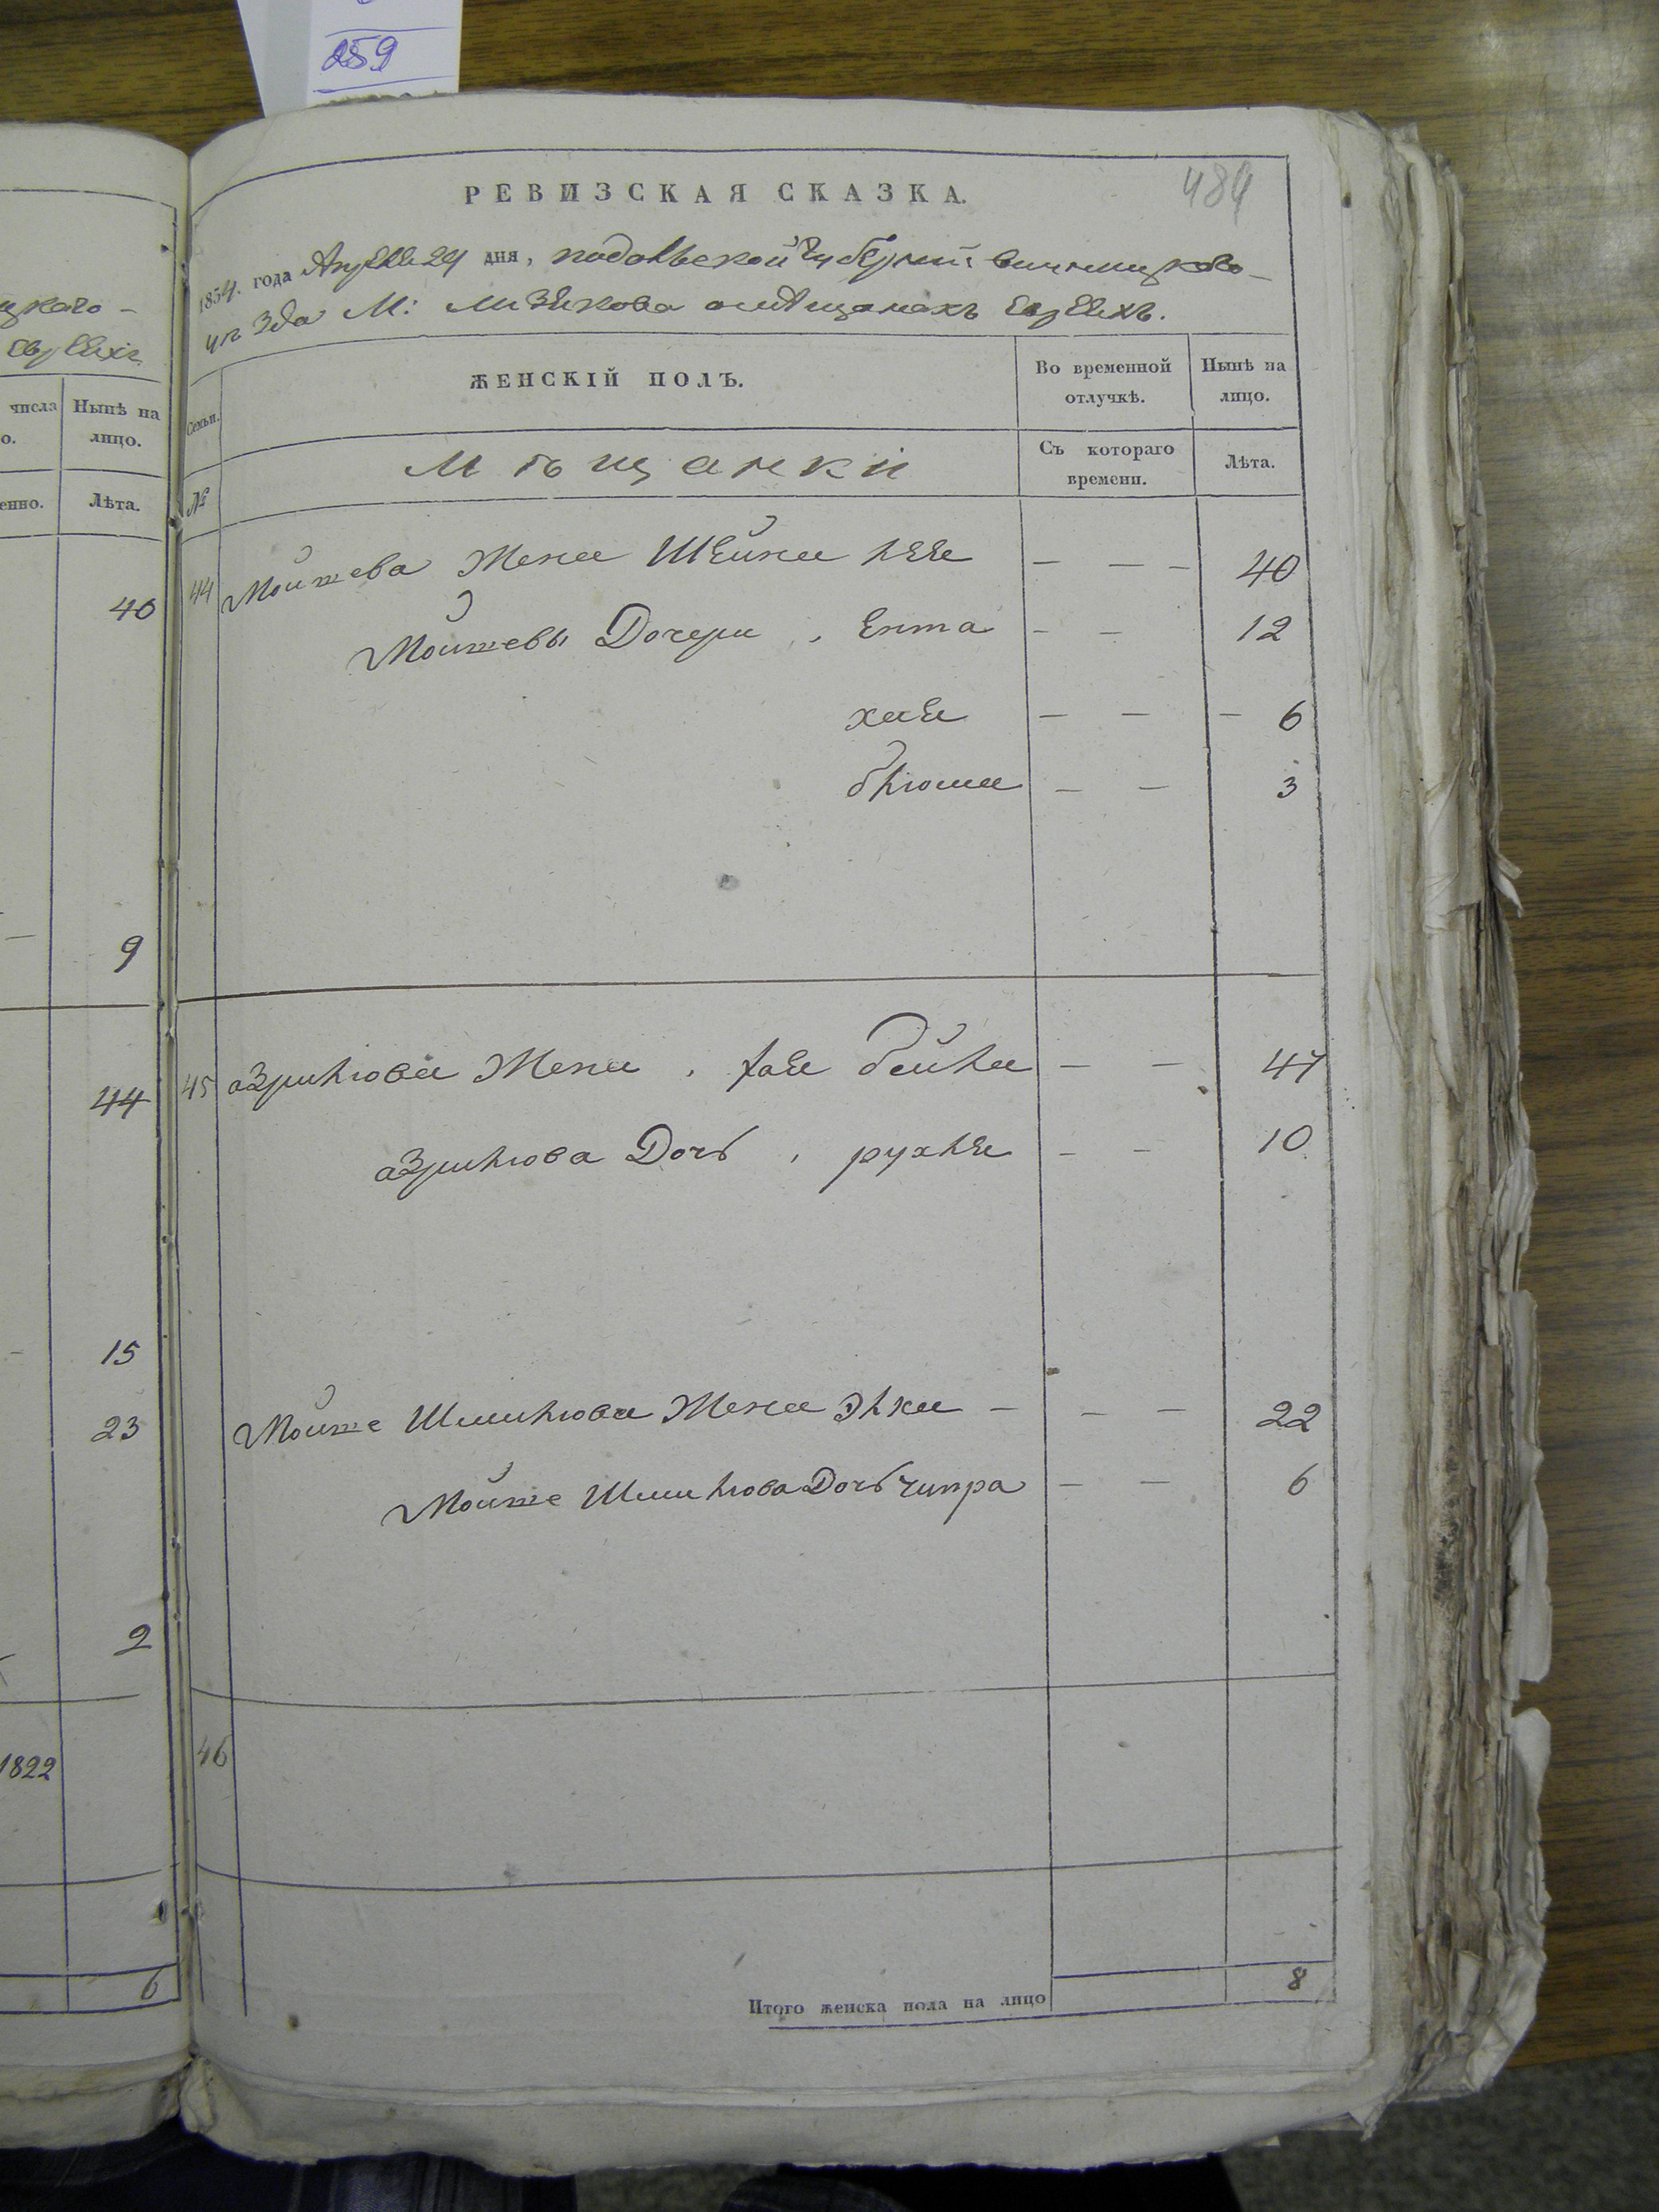 259
484
РЕВИЗСКАЯ СКАЗКА.
1854. года Апреля 24 дня, подольской Губерній винницкого
уѣзда М: Мизякова омещанахъ Евреихъ.
цкаго
Евреихъ
ЖЕНСКІЙ ПОЛЪ.
Во временной отлучкѣ.
Нынѣ на лицо.
Семьи.
числа
Нынѣ на лицо.
Мѣщанки
Съ котораго времени.
Лѣта.
№
енно.
Лѣта.
40
44 Мойшева Жена Шейна лея — — — 40
Мойшевы Дочери, Ента — — 12
хая — — — 6
блюма — — 3
9
44
45 азрилюва Жена, хая бейла — — 47
азрилюва Дочь, рухля — — 10
15
23
Мойше Шмилюва Жена Элка — — — 22
Мойше Шмилюва Дочь Чипра — — 6
2
46
1822
6
Итого женска пола на лицо 8